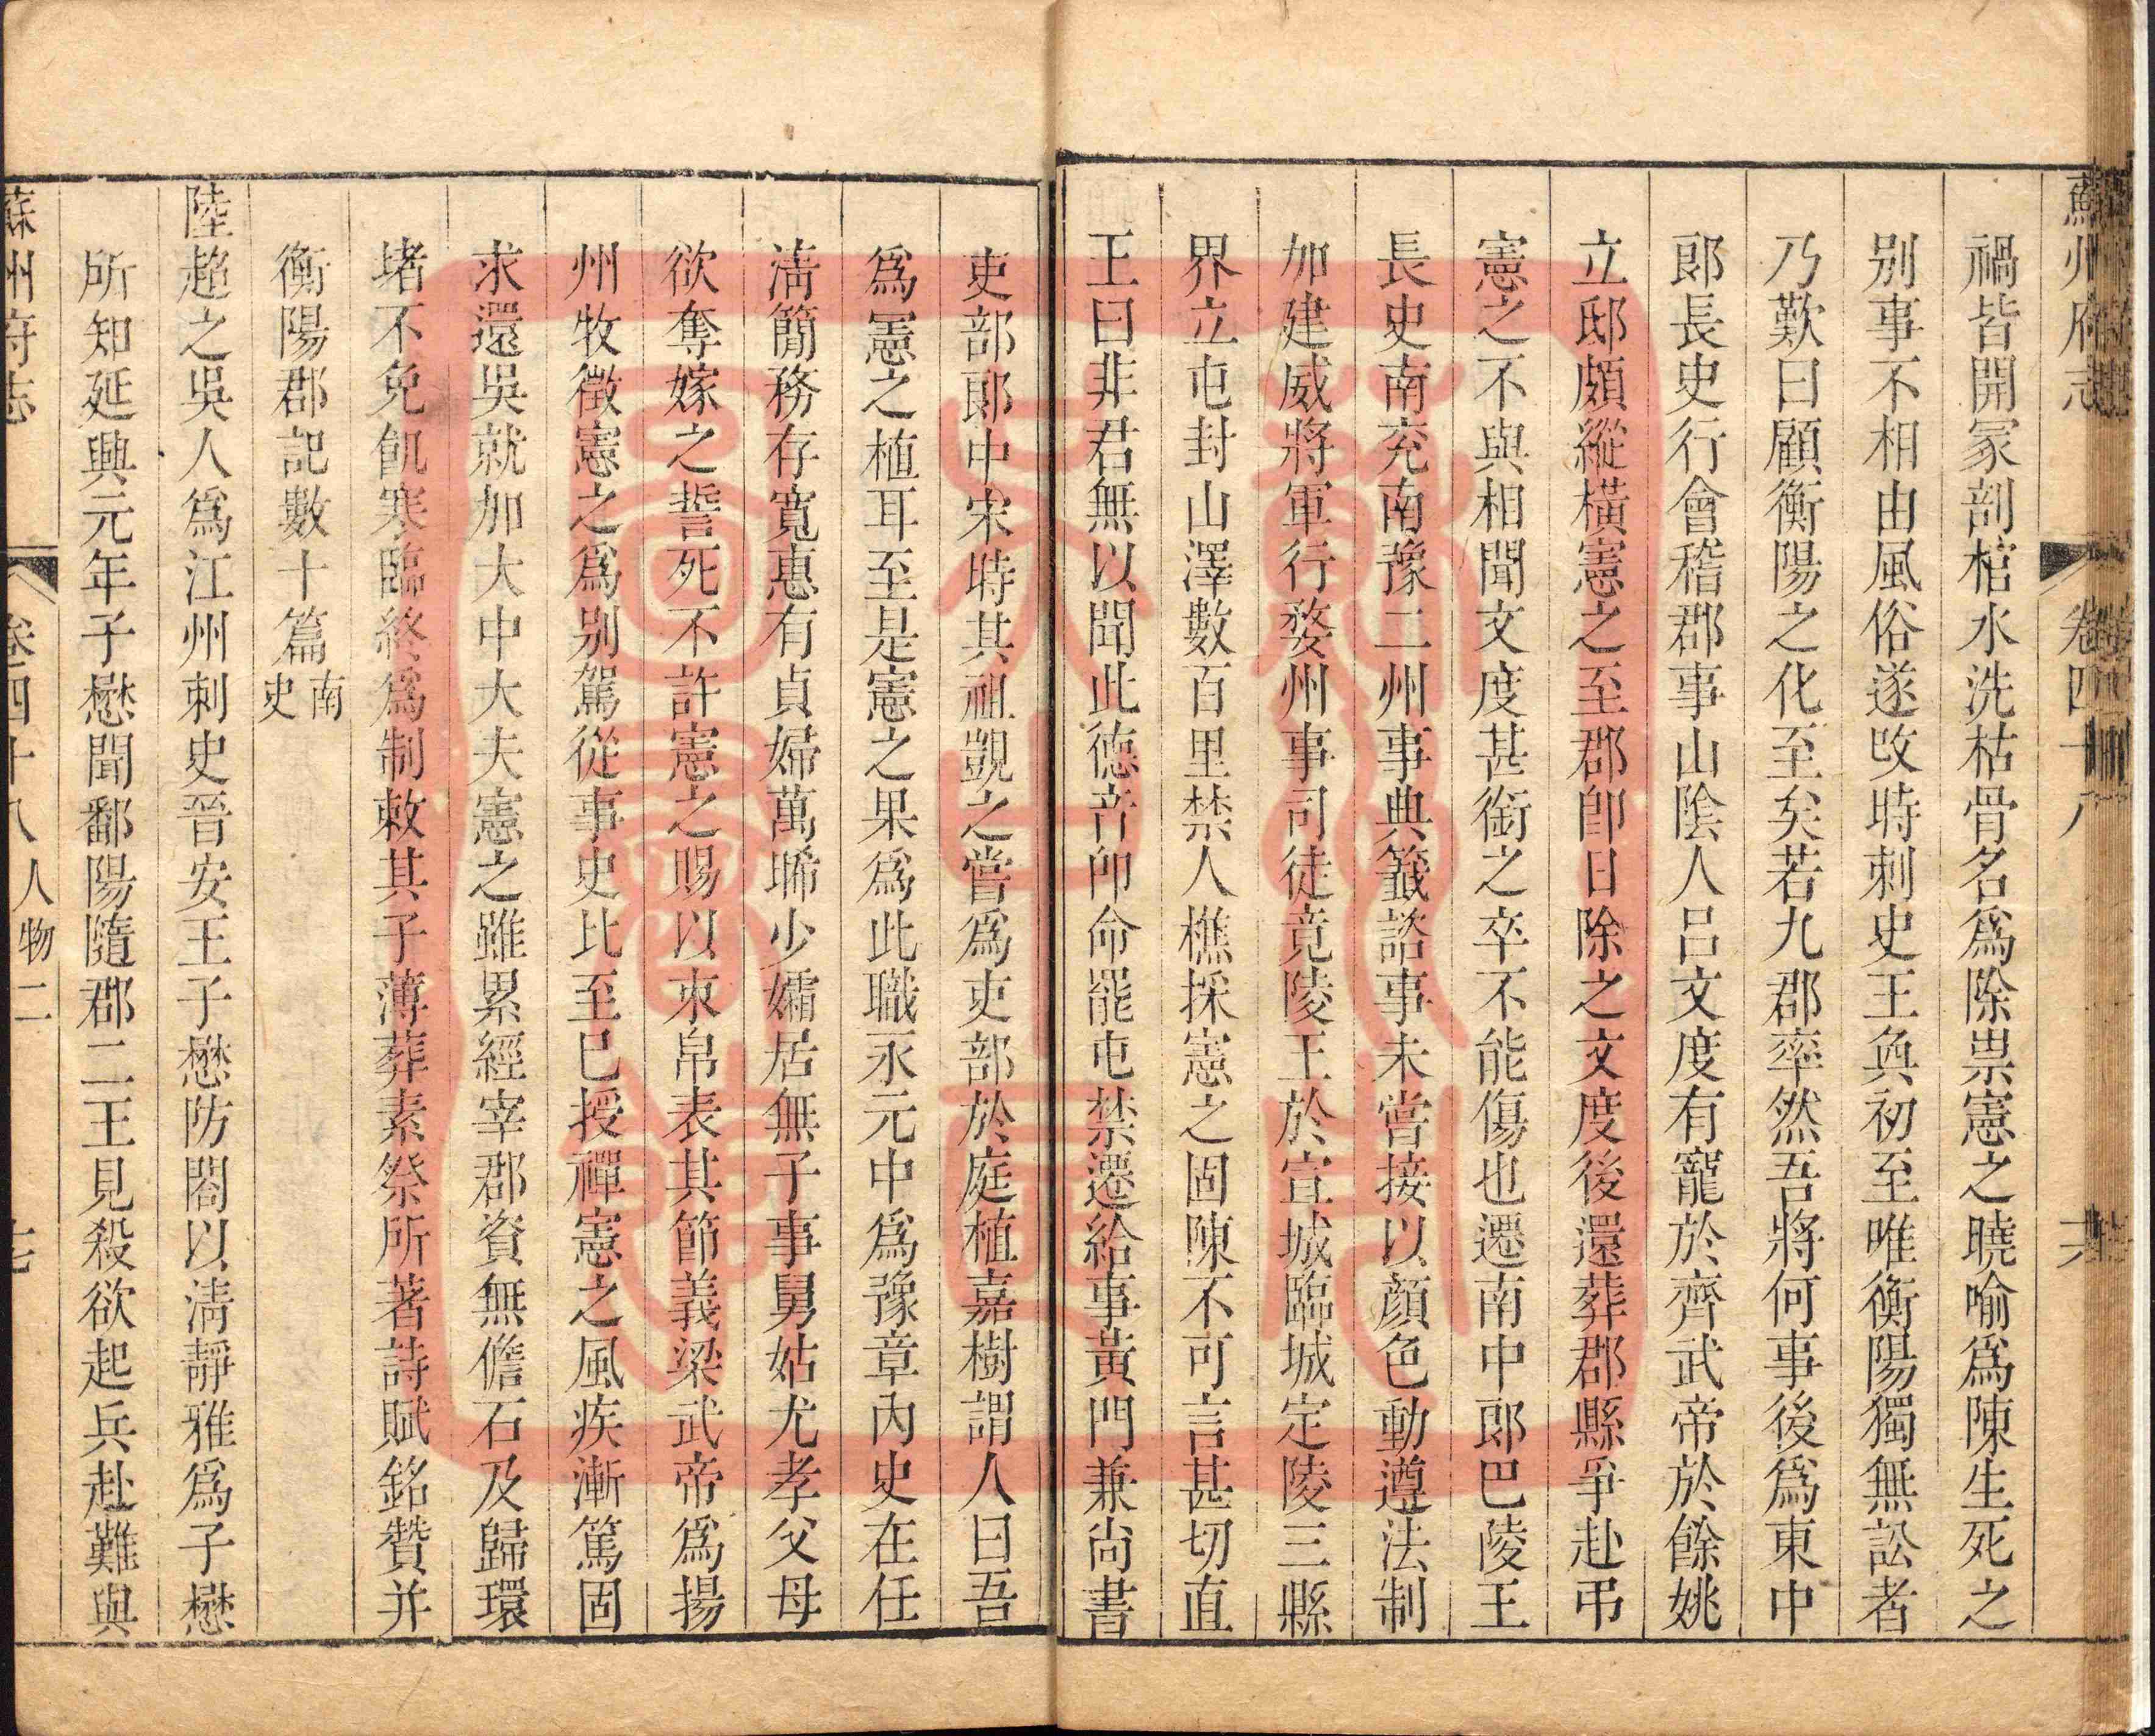 蘇州府志 卷四十八 六
禍皆開冢剖棺水洗枯骨名爲除祟憲之曉喻爲陳生死之
別事不相由風俗遂改時刺史王奐初至唯衡陽獨無訟者
乃歎曰顧衡陽之化至矣若九郡率然吾將何事後爲東中
郞長史行會稽郡事山陰人呂文度有寵於齊武帝於餘姚
立邸頗縱橫憲之至郡卽日除之文度後還葬郡縣爭赴弔
憲之不與相聞文度甚銜之卒不能傷也遷南中郞巴陵王
長史南充南豫二州事典籤諮事未嘗接以顔色動遵法制
加建威將軍行婺州事司徒竟陵王於宣城臨城定陵三縣
界立屯封山澤數百里禁人樵採憲之固陳不可言甚切直
王曰非君無以聞此德音卽命罷屯禁遷給事黃門兼尙書
吏部郞中宋時其祖覬之嘗爲吏部於庭植嘉樹謂人曰吾
爲憲之植耳至是憲之果爲此職永元中爲豫章內史在任
淸簡務存寬惠有貞婦萬晞少孀居無子事舅姑尤孝父母
欲奪嫁之誓死不許憲之賜以束帛表其節義梁武帝爲揚
州牧徵憲之爲別駕從事史比至已授禪憲之風疾漸篤固
求還吳就加大中大夫憲之雖累經宰郡資無儋石及歸環
堵不免飢寒臨終爲制敕其子薄葬素祭所著詩賦銘贊并
衡陽郡記數十篇南史
陸超之吳人爲江州刺史晉安王子懋防閤以淸靜雅爲子懋
所知延興元年子懋聞鄱陽隨郡二王見殺欲起兵赴難與
蘇州府志 卷四十八 人物二 七